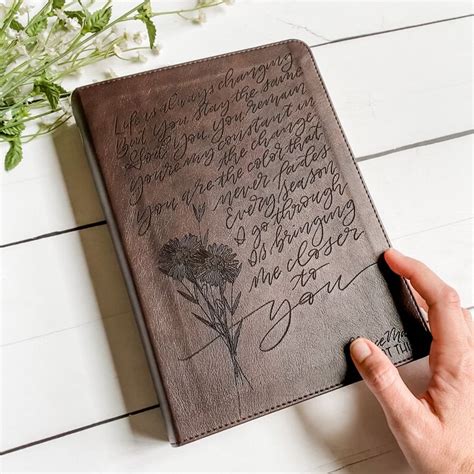 Life is always changing
But you stay the same
God, you remain
You're my constant in
the change
You are the color that
never fades
Every season
I go through
Is bringing
me closer
to
you